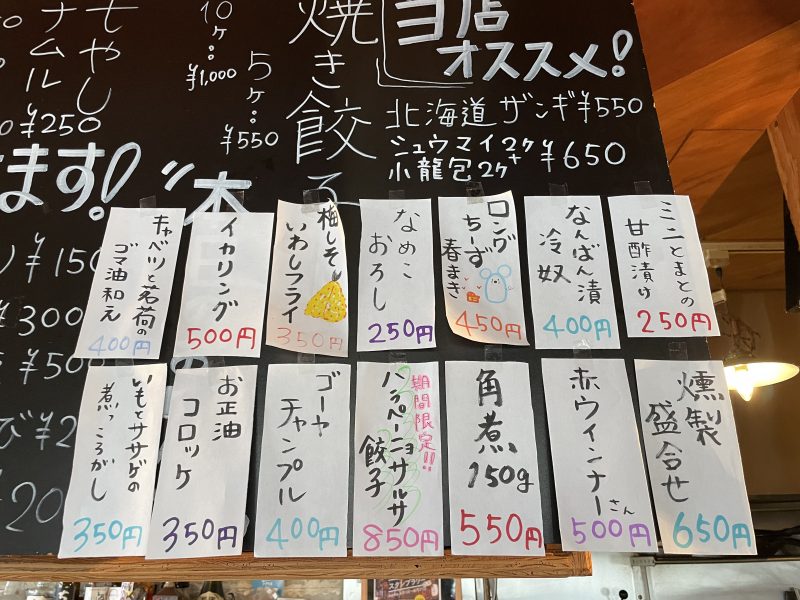 もやし
ナムル
¥250
ます!
10ヶ:
¥1,000
5ヶ:
¥550
焼き餃子
当店
オススメ!
北海道ザンギ¥550
シュウマイ2ケ+
小龍包2ケ
¥650
¥150
¥300
¥500
ミニとまとの
甘酢漬け
250円
なんばん漬
冷奴
400円
ロング
ちーず
春まき
450円
なめこ
おろし
250円
梅しそ
いわしフライ
350円
イカリング
500円
キャベツと茗荷の
ゴマ油和え
400円
燻製
盛合せ
650円
赤ウインナーさん
500円
角煮
150g
550円
期間限定!!
ハラペーニョサルサ
餃子
850円
ゴーヤ
チャンプル
400円
お正油
コロッケ
350円
いもとササゲの
煮っころがし
350円